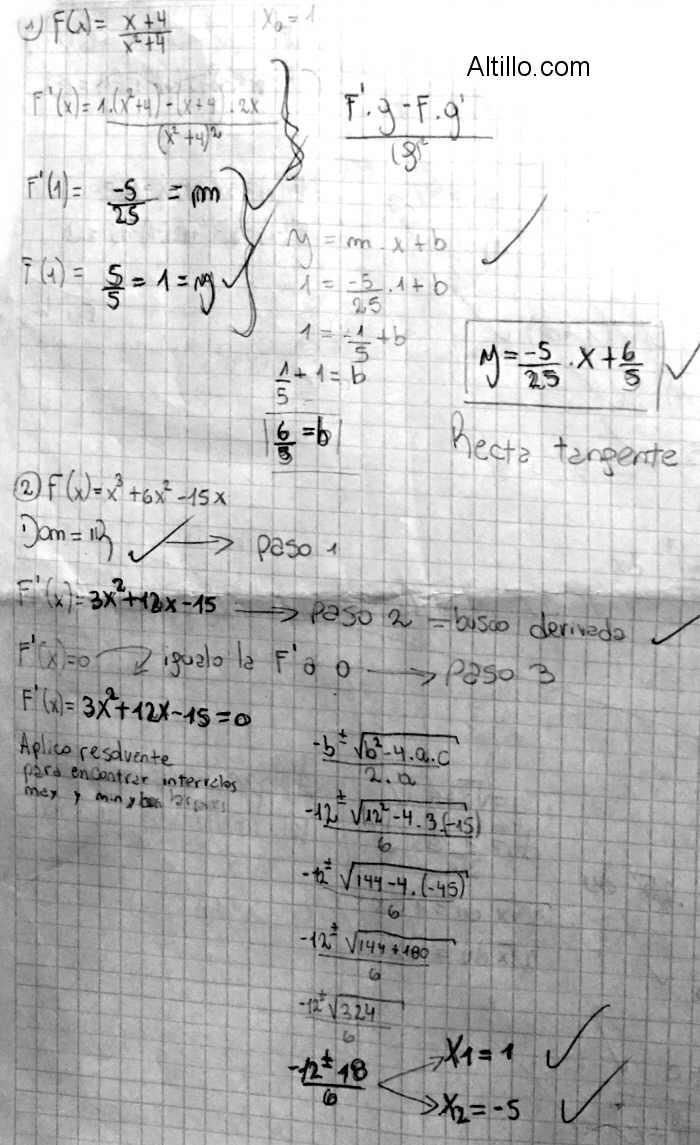 1) F(x) = x+4 / x²+4    X₀ = 1
Altillo.com
F'(x) = 1.(x²+4) - (x+4) . 2x / (x²+4)²
F'.g - F.g' / (g)²
F'(1) = -5/25 = m
F(1) = 5/5 = 1 = y
y = m . x + b
1 = -5/25 . 1 + b
1 = -1/5 + b
1/5 + 1 = b
6/5 = b
y = -5/25 . x + 6/5
Recta tangente
2) F(x) = x³ + 6x² - 15x
Dom = IR → paso 1
F'(x) = 3x² + 12x - 15 → paso 2 = busco derivada
F'(x) = 0 igualo la F' a 0 → paso 3
F'(x) = 3x² + 12x - 15 = 0
Aplico resolvente
para encontrar intervalos
max y min y
-b ± √b² - 4.a.c / 2.a
-12 ± √12² - 4.3.(-15) / 6
-12 ± √144 - 4.(-45) / 6
-12 ± √144 + 180 / 6
-12 ± √324 / 6
-12 ± 18 / 6
X1 = 1
X2 = -5